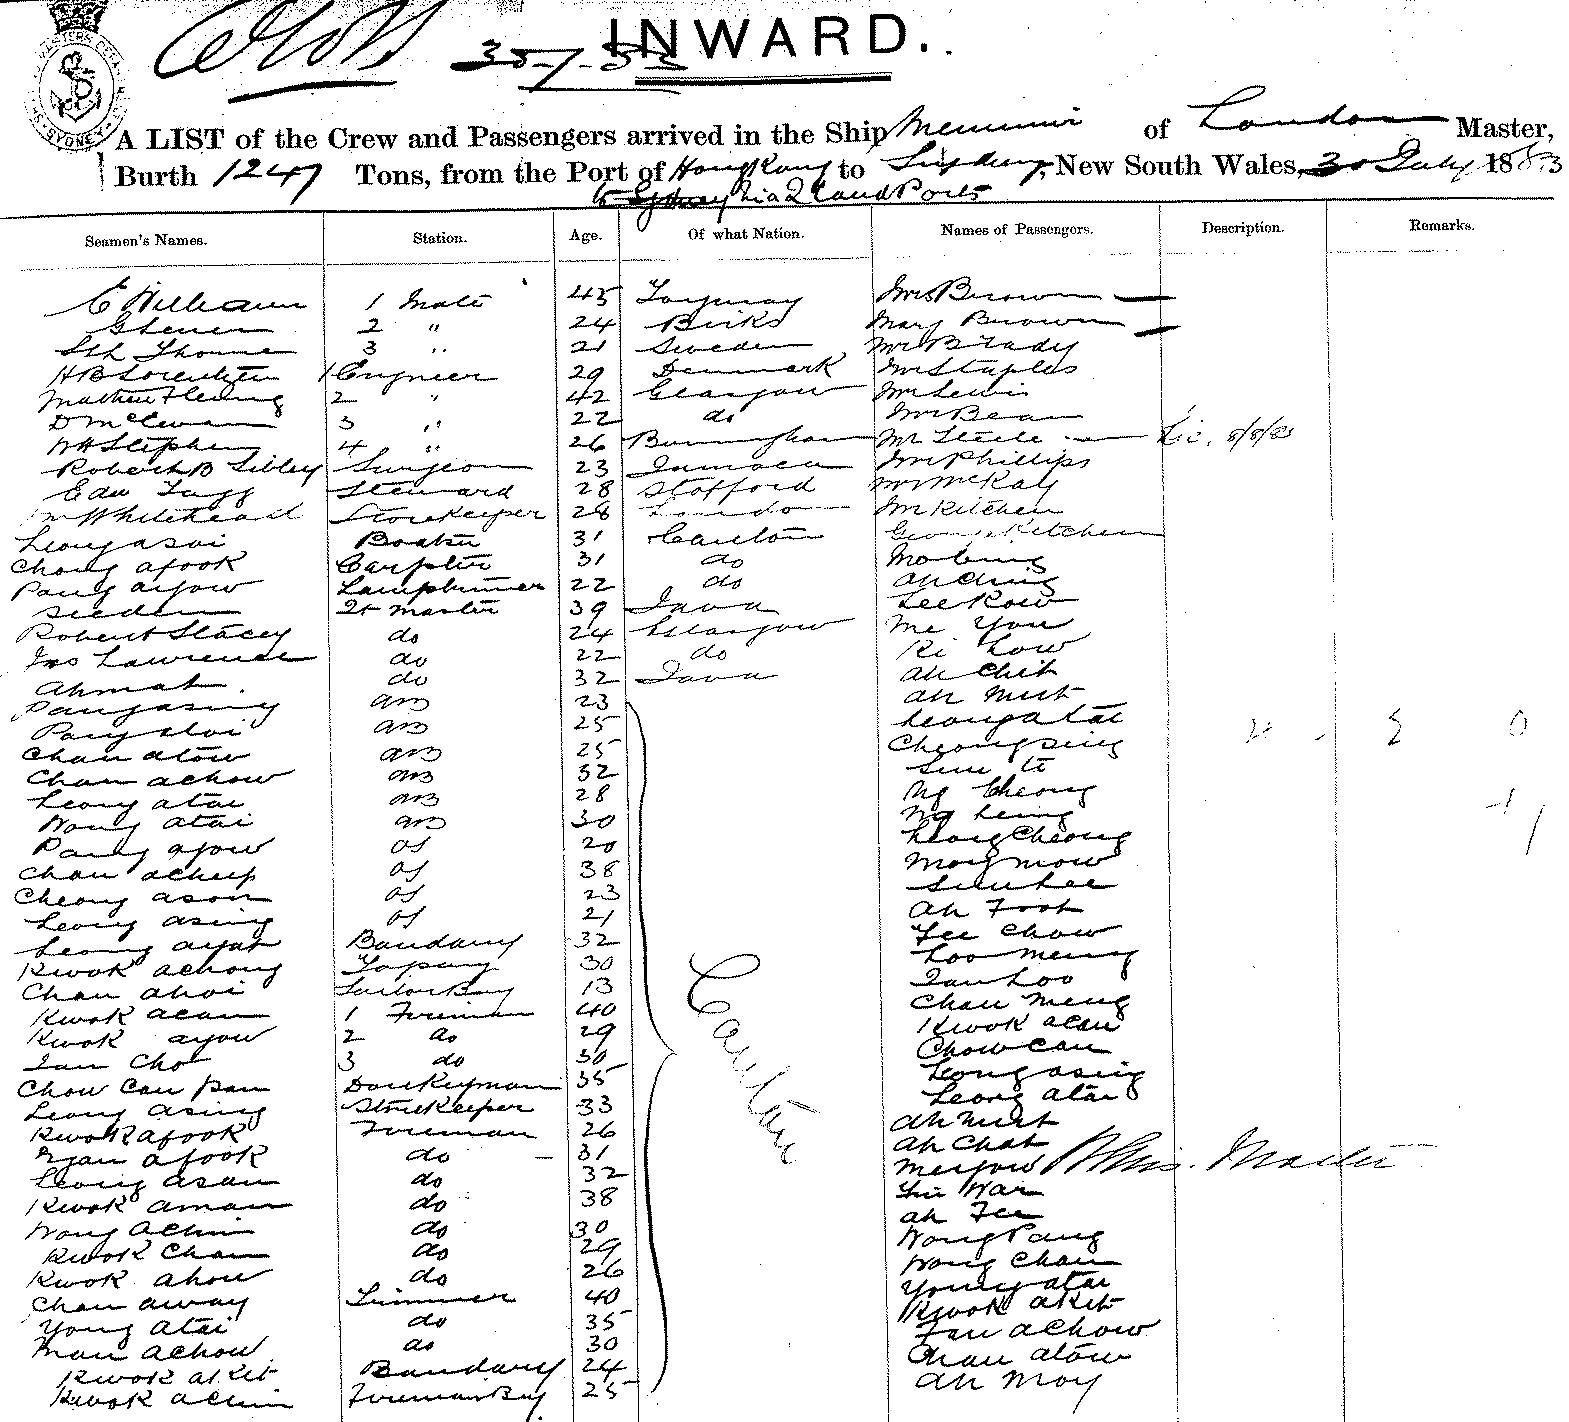 INWARD.
30-7-83
SYDNEY
A LIST of the Crew and Passengers arrived in the Ship Memnuir of London Master,
Burth 1247 Tons, from the Port of Hong Kong to Sydney, New South Wales, 30 July 1883
to Sydney via Q land Ports
Seamen's Names. Station. Age. Of what Nation. Names of Passengers. Description. Remarks.
E William 1 Mate 45 Torquay Mrs Brown
2 " 24 Birks Mary Brown
Sth Thorne 3 " 21 Sweden Mr B Tady
H B Lorentzen 1 Engineer 29 Denmark Mr Staples
Mathew Fleming 2 " 42 Glasgow Mr Lewis
D McEwan 3 " 22 do Mr Bean
W H Stephen 4 " 26 Birmingham Mr Steele
Robert B Sibley Surgeon 23 Jamaca Mr Phillips
Edw Tagg Steward 28 Stafford Mr McKay
Whitehead Storekeeper 28 London Mr Kitchen
Leong asoi Boatsn 31 Canton George Kitchen
Chong afook Carpter 31 do
Pang ayow Lamptrimer 22 do Ah Ching
Sieden Qt Master 39 Java Lee Kow
Robert Stacey do 24 Glasgow Me You
Jno Lawrence do 22 do Ki Low
Ahmat. do 32 Java Ah Chit
Pang asing AB 23 Ah Mut
Pang aloi AB 25 Leong atai
Chan atow AB 25 Cheong sing
Chan achow AB 32 Sun te
Leong atai AB 28 Ng Cheong
Wong atai AB 30 Ng Leing
Pang ayow OS 20 Leong Cheong
Chan acheep OS 38 Mong mow
Cheong ason OS 23 Sun Lee
Leong asing OS 21 Ah Foot
Leong ayat Bandary 32 Fee Chow
Kwok achong Topang 30 Loo meng
Chan ahoi Sailor Boy 13 Tan Loo
Kwok acan 1 Fireman 40 Chan Meng
Kwok ayow 2 do 29 Kwok acan
Tan Cho 3 do 30 Chow Can
Chow Can Pan Donkeyman 35 Leong asing
Leong asing Storekeeper 33 Leong atai
Kwok afook Fireman 26 Ah Mut
afook do 31 Ah Chat
Leong asan do 32 Meyow
Master
Kwok aman do 38 War
Wong Achin do 30 Ah Fee
Kwok Chan do 29 Wong Pang
Kwok ahow do 26 Wong Chan
Chan away Trimmer 40 Young atai
Yong atai do 35 Kwok akit
Man achow do 30 Fan achow
Kwok akit Bandary 24 Chan atow
Kwok achin Fireman Boy 25 Ah Moy
Canton